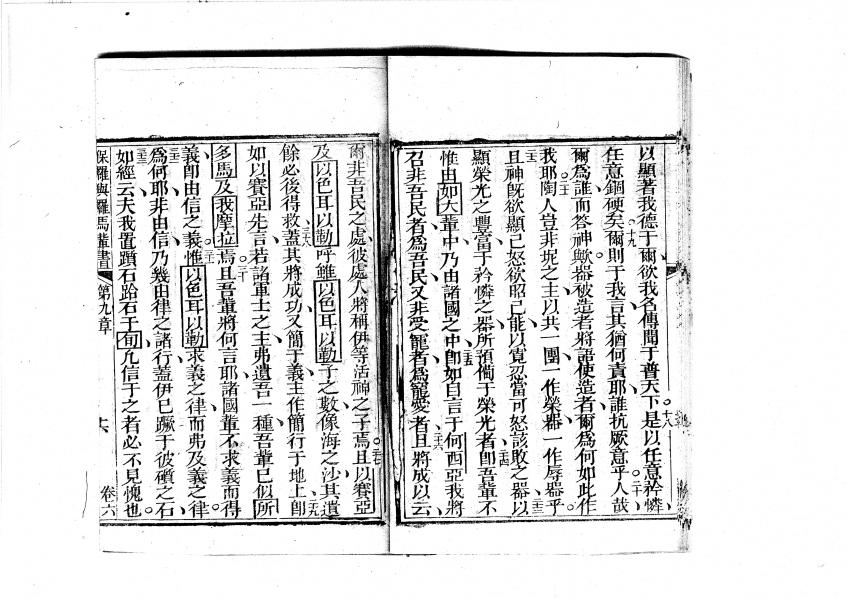 以顯著我德于爾欲我名傳聞于普天下是以任意矜憐十八
任意鋼硬矣爾則于我言其猶何責耶誰抗厥意乎人哉十九 二十
爾爲誰而答神歟器被造者將語使造者爾爲何如此作
我耶陶人豈非坭之主以共一團一作榮器一作辱器乎二一
且神旣欲顯己怒欲昭己能以寬忍當可怒該敗之器以二二
顯榮光之豐富于矜憐之器所預備于榮光者卽吾輩不二三
惟由如大輩中乃由諸國之中卽如自言于何西亞我將二四 二五
召非吾民者爲吾民又非受寵者爲寵愛者且將成以云二六
爾非吾民之處彼處人將稱伊等活神之子焉且以賽亞二七
及以色耳以勒呼雖以色耳以勒子之數像海之沙其遺
餘必後得救蓋其將成功又簡于義主作簡行于地上卽二八
如以賽亞先言若諸軍士之主弗遺吾一種吾輩已似所二九
多馬及我摩拉焉且吾輩將何言耶諸國輩不求義而得三十
義卽由信之義惟以色耳以勒求義之律而弗及義之律三一
爲何耶非由信乃幾由律之諸行蓋伊已蹶于彼礩之石三二
如經云夫我置躓石跲石于旬凡信于之者必不見愧也三三
保羅與羅馬輩書 第九章 卷六